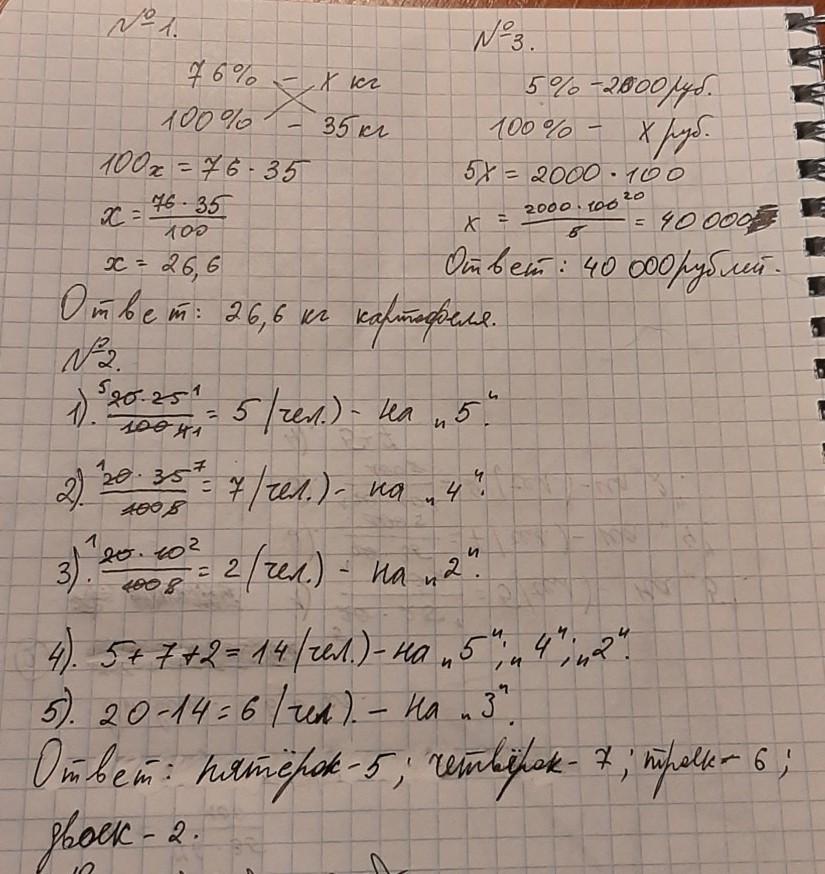 №1.
76% – х кг
100% – 35 кг
100х = 76 · 35
х = 76 · 35 / 100
х = 26,6
Ответ: 26,6 кг картофеля.
№3.
5% – 2000 руб.
100% – х руб.
5х = 2000 · 100
х = 2000 · 100 20 / 5 = 40 000
Ответ: 40 000 рублей.
№2.
1). 5 20 · 25 1 / 100 4 1 = 5 (чел.) – на „5“.
2). 1 20 · 35 7 / 100 5 = 7 (чел.) – на „4“.
3). 1 20 · 10 2 / 100 5 = 2 (чел.) – на „2“.
4). 5 + 7 + 2 = 14 (чел.) – на „5“; „4“; „2“.
5). 20 – 14 = 6 (чел). – на „3“.
Ответ: пятёрок – 5; четвёрок – 7; троек – 6;
двоек – 2.